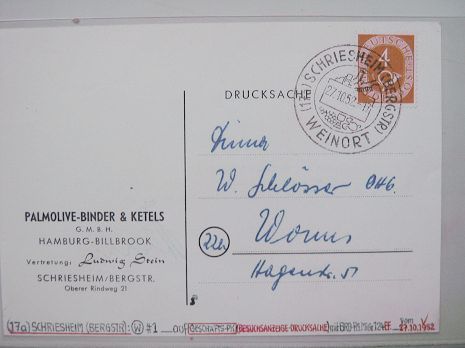 DRUCKSACHE
(17a) SCHRIESHEIM (BERGSTR)
27.10.52
WEINORT
DEUTSCHE POST
4
Firma
W. Schlösser OHG.
22b
Worms
Hagenstr. 51
PALMOLIVE-BINDER & KETELS
G. M. B. H.
HAMBURG-BILLBROOK
Vertretung: Ludwig Stein
SCHRIESHEIM/BERGSTR.
Oberer Rindweg 21
(17a) SCHRIESHEIM (BERGSTR): W #1 auf GESCHÄFTS-PK (BESUCHSANZEIGE-DRUCKSACHE) vom
27.10.1952